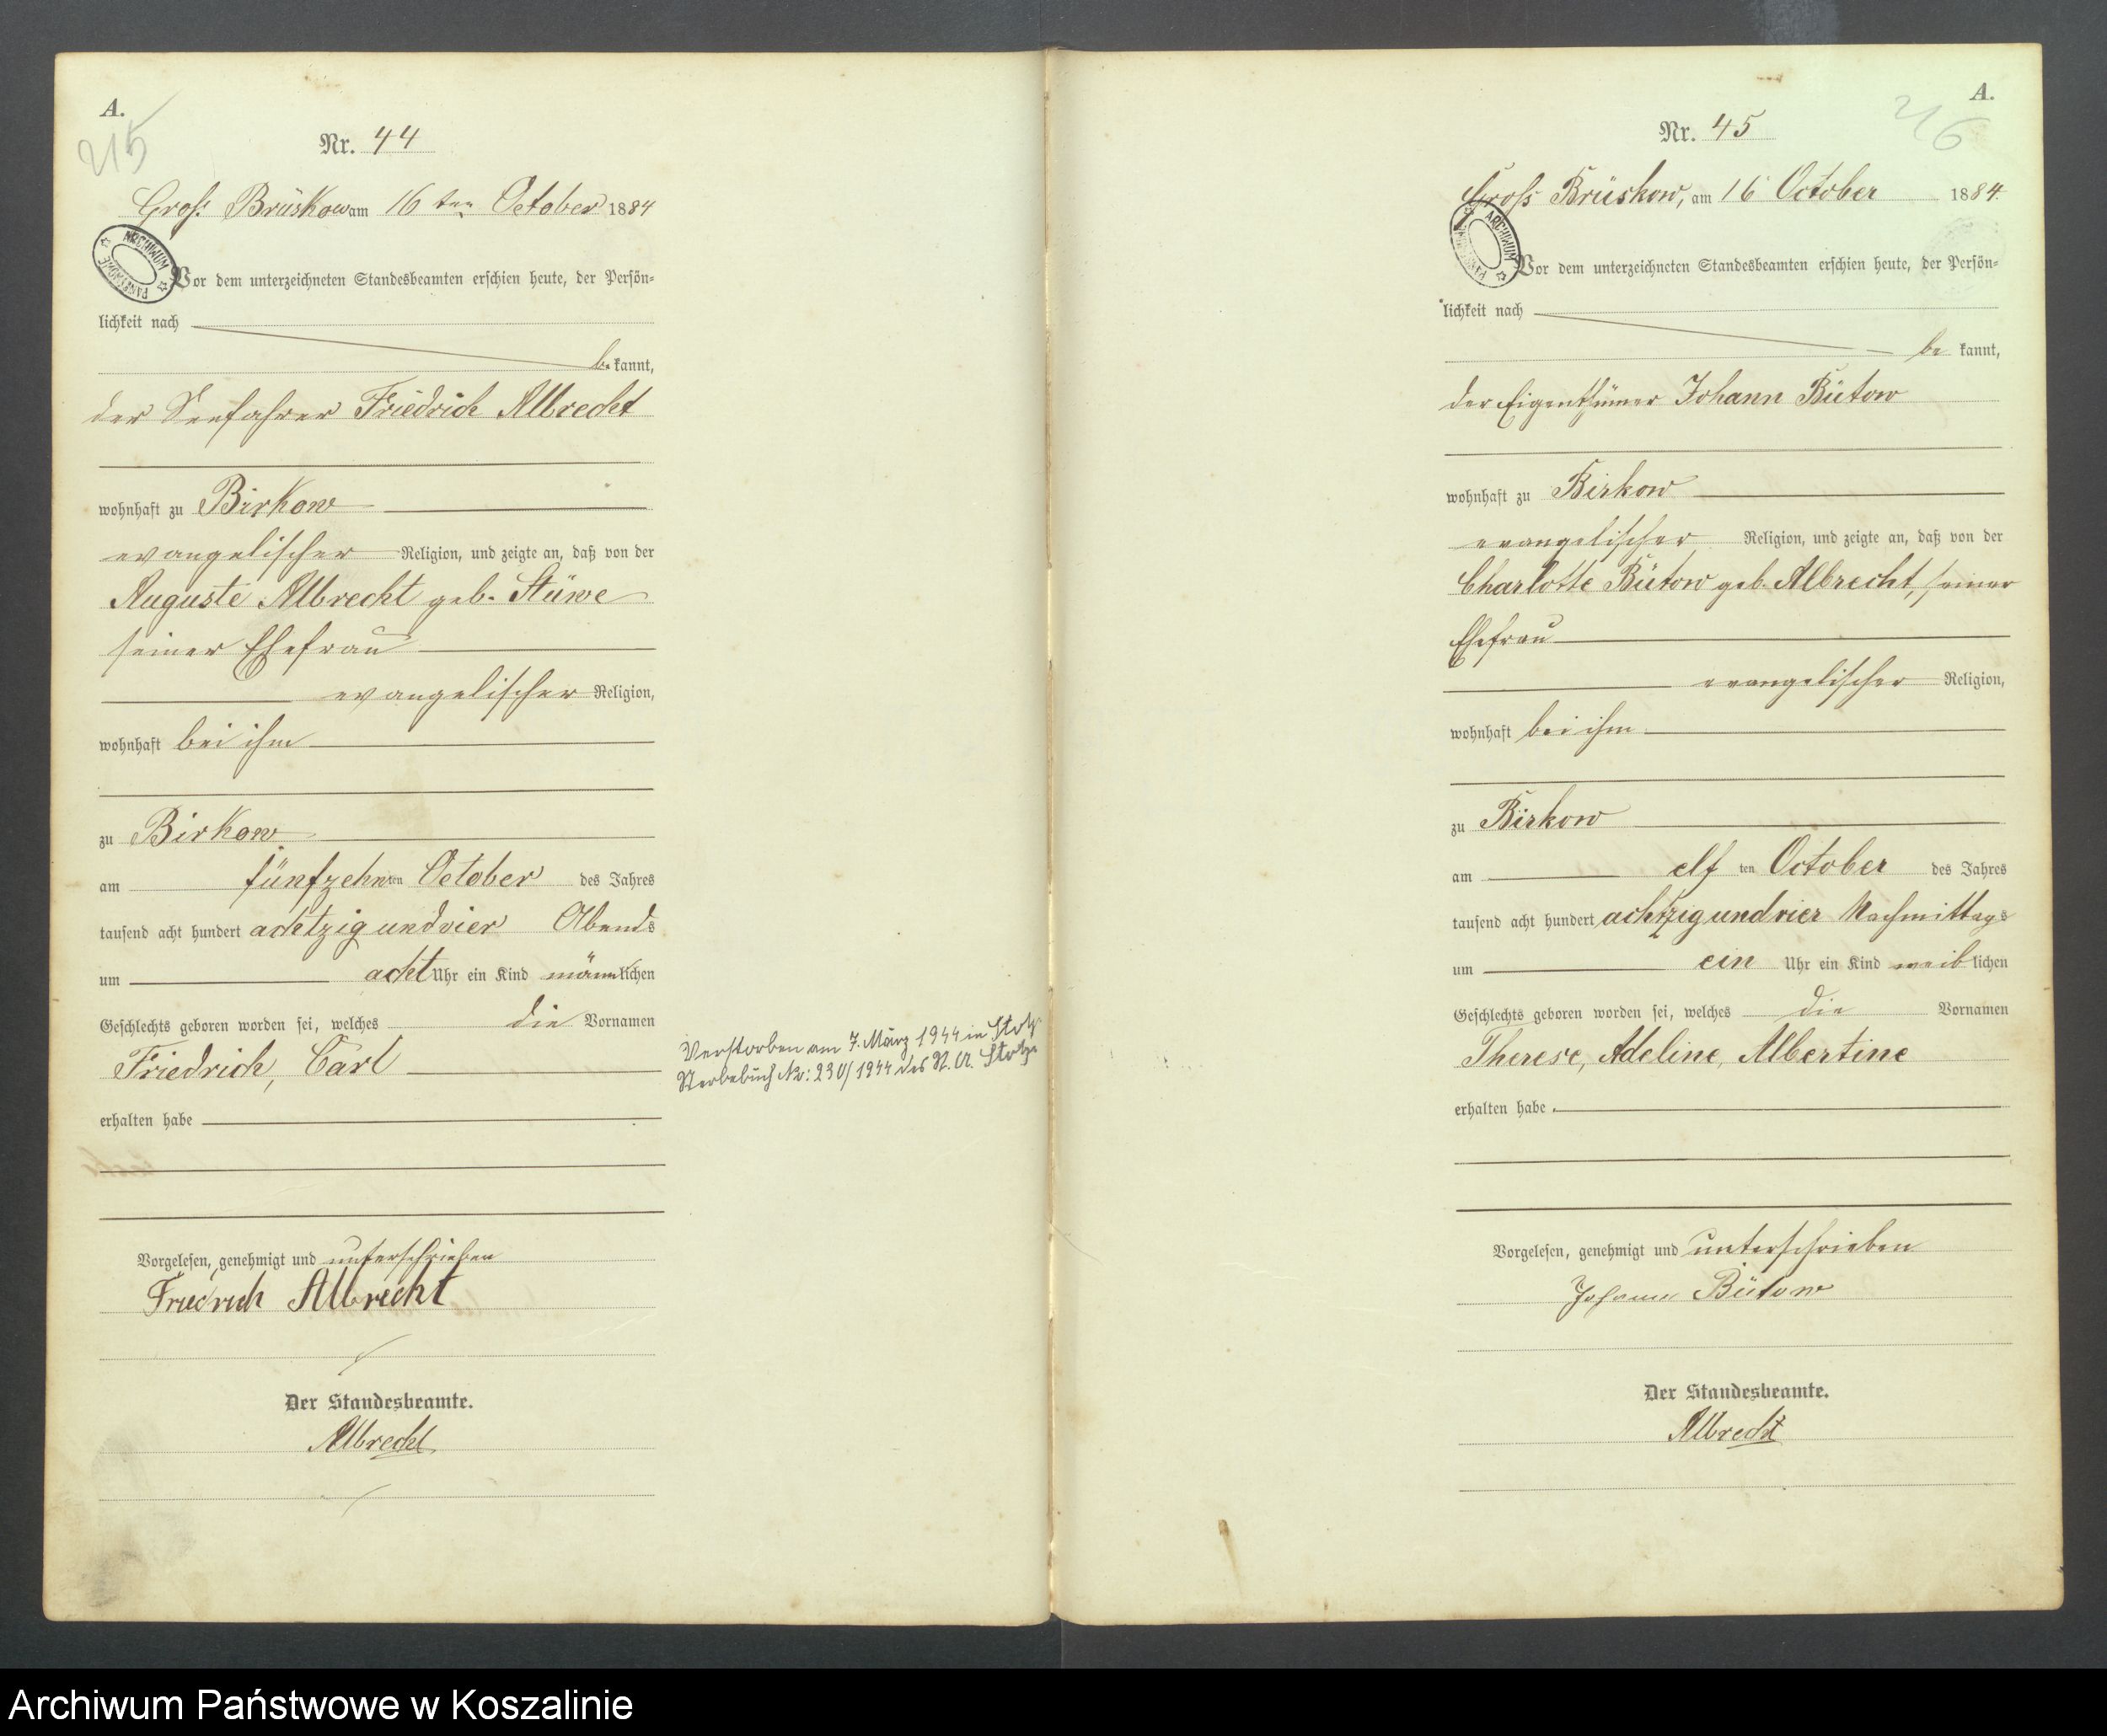 A.
215
Nr. 44
Groß Brüskow am 16ten October 1884
ARCHIWUM PAŃSTWOWE
Vor dem unterzeichneten Standesbeamten erschien heute, der Persön-
lichkeit nach
be kannt,
der Seefahrer Friedrich Albrecht
wohnhaft zu Birkow
evangelischer Religion, und zeigte an, daß von der
Auguste Albrecht geb. Stüwe
seiner Ehefrau
evangelischer Religion,
wohnhaft bei ihm
zu Birkow
am fünfzehnten October des Jahres
tausend acht hundert achtzig und vier Abends
um acht Uhr ein Kind männlichen
Geschlechts geboren worden sei, welches die Vornamen
Friedrich, Carl
erhalten habe
Verstorben am 7. März 1944 in Stolp
Sterbebuch Nr: 230/1944 des St. A. Stolp
Vorgelesen, genehmigt und unterschrieben
Friedrich Albrecht
Der Standesbeamte.
Albrecht
A.
216
Nr. 45
Groß Brüskow, am 16 October 1884.
ARCHIWUM PAŃSTWOWE
Vor dem unterzeichneten Standesbeamten erschien heute, der Persön-
lichkeit nach
be kannt,
der Eigenthümer Johann Bütow
wohnhaft zu Birkow
evangelischer Religion, und zeigte an, daß von der
Charlotte Bütow geb. Albrecht, seiner
Ehefrau
evangelischer Religion,
wohnhaft bei ihm
zu Birkow
am elf ten October des Jahres
tausend acht hundert achtzig und vier Nachmittags
um ein Uhr ein Kind weiblichen
Geschlechts geboren worden sei, welches die Vornamen
Therese, Adeline, Albertine
erhalten habe.
Vorgelesen, genehmigt und unterschrieben
Johann Bütow
Der Standesbeamte.
Albrecht
Archiwum Państwowe w Koszalinie